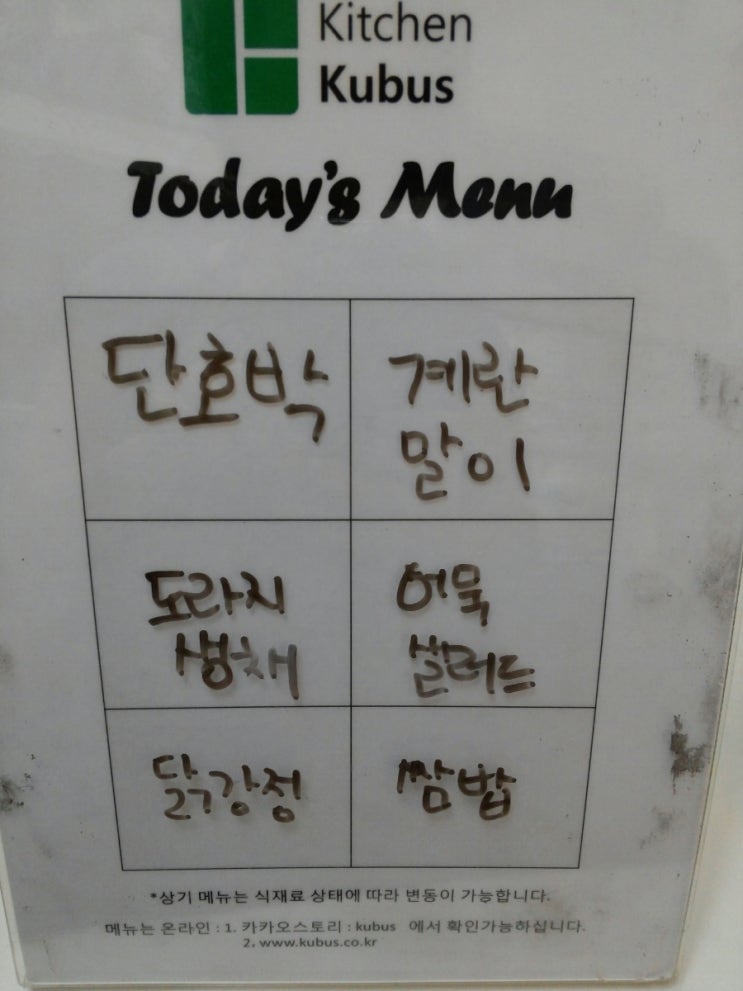 Kitchen
Kubus
Today's Menu
단호박
계란
말이
도라지
생채
어묵
샐러드
닭강정
쌈밥
*상기 메뉴는 식재료 상태에 따라 변동이 가능합니다.
메뉴는 온라인 : 1. 카카오스토리 : kubus 에서 확인가능하십니다.
2. www.kubus.co.kr